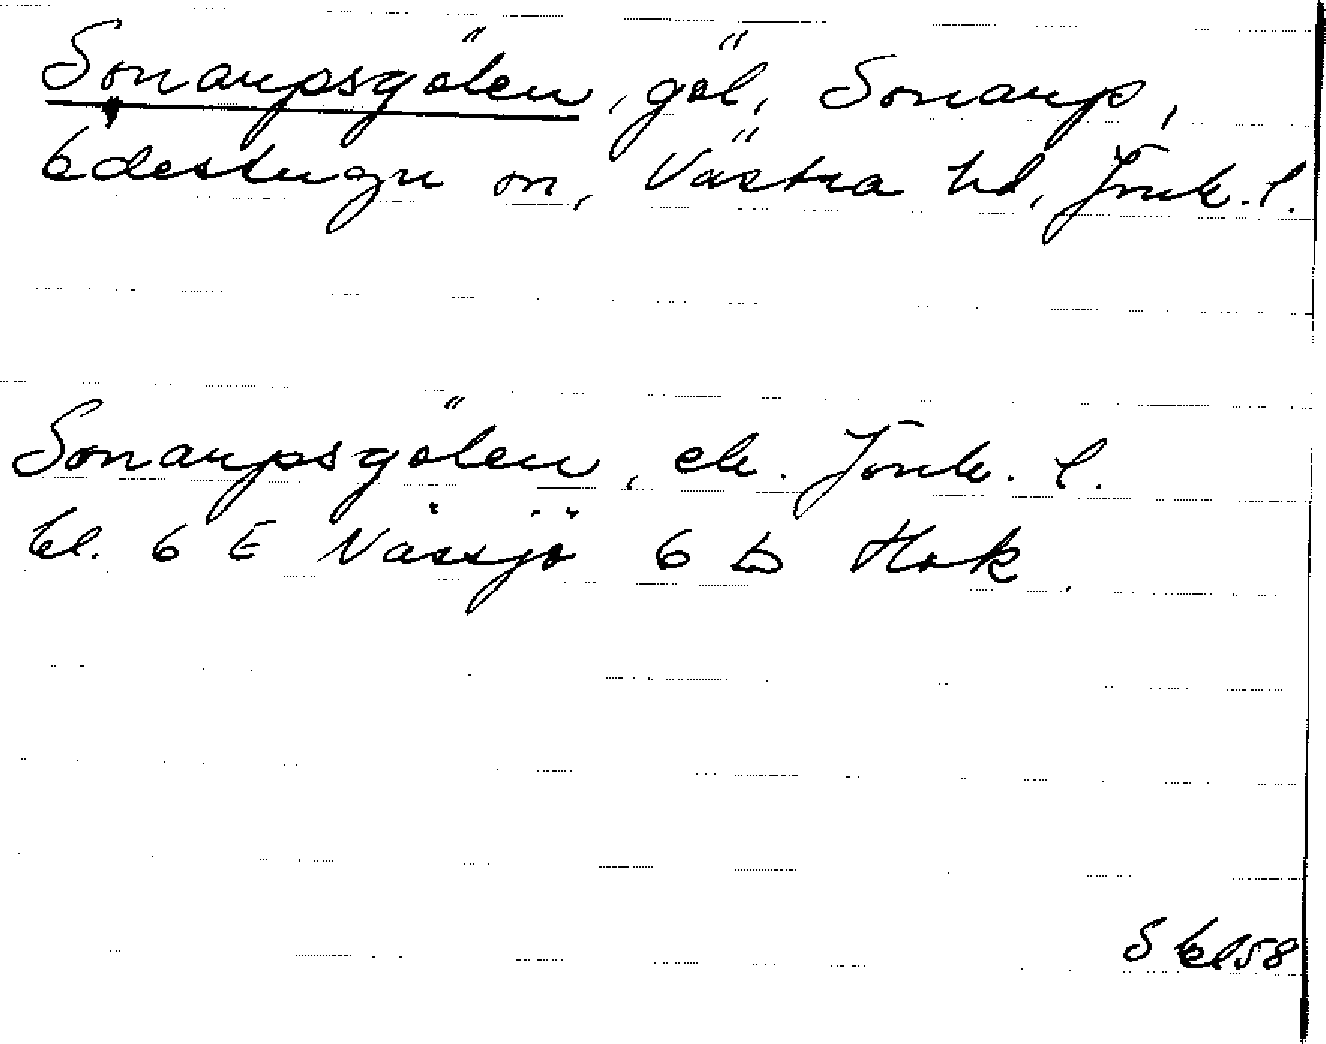 Sonarpsgölen, göl, Sonarp,
Edeshugn sn, Västra hd, Jönk. l.
Sonarpsgölen, ek. Jönk. l.
bl. 6 E Nässjö 6 b Hok